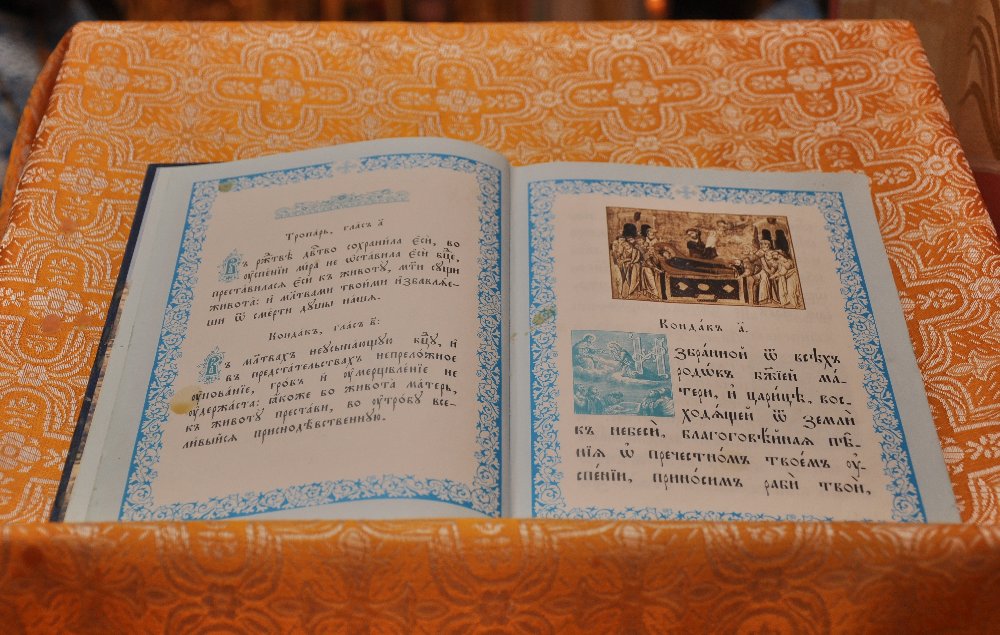 Тропа́рь, гла́съ а҃
Въ ржⷭ҇твѣ̀ дв҃ство сохрани́ла є҆сѝ, во
ᲂу҆спе́нїи мі́ра не ѡ҆ста́вила є҆сѝ бц҃е,
преста́виласѧ є҆сѝ къ животꙋ̀, мт҃и сꙋ́щи
живота̀: и҆ мл҃твами твои́ми и҆збавлѧ́е-
ши ѿ сме́рти дꙋ́шы на́шѧ.
Конда́къ, гла́съ в҃:
Въ мл҃твахъ неꙋсыпа́ющꙋю бц҃ꙋ, и҆
въ предста́тельствахъ непрело́жное
ᲂу҆пова́нїе, гро́бъ и҆ ᲂу҆мерщвле́нїе не
ᲂу҆держа́ста: ꙗ҆́коже бо живота̀ ма́терь,
къ животꙋ̀ преста́ви, во ᲂу҆тро́бꙋ все-
ли́выйсѧ присноде́вственнꙋю.
Конда́къ а҃.
Збра́нной ѿ всѣ́хъ
родѡ́въ бж҃їей ма́-
тери, и҆ цари́цѣ, вос-
ходѧ́щей ѿ землѝ
къ небесѝ, благоговѣ́йнаѧ пѣ̑-
нїѧ ѡ҆ пречестно́мъ твое́мъ ᲂу҆-
спе́нїи, прино́симъ рабѝ твоѝ,